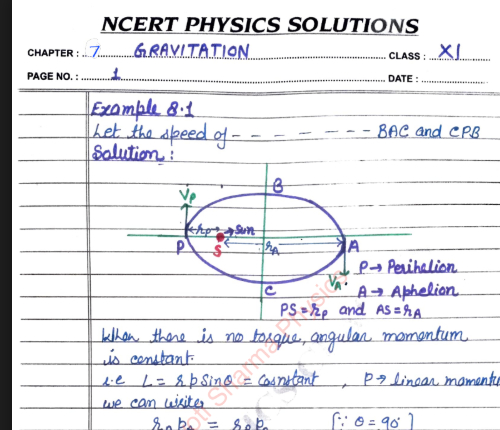 NCERT PHYSICS SOLUTIONS
CHAPTER : 7 GRAVITATION CLASS : XI
PAGE NO. : 1 DATE :
Example 8.1
Let the speed of - - - - - - - - BAC and CPB
Solution :
B
VP
rP → sun
P S rA A
VA
C
P → Perihelion
A → Aphelion
PS = rP and AS = rA
When there is no torque, angular momentum
is constant.
i.e L = r p Sinθ = Cosnstant , P → linear momentu
we can write
[∵ θ = 90°]